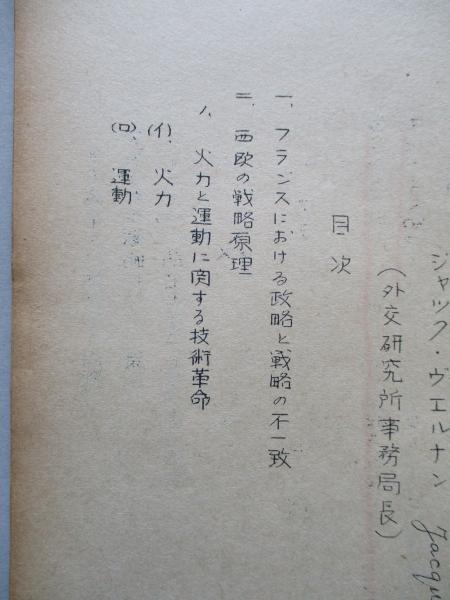 ジャック・ヴェルナン Jacqu
（外交研究所事務局長）
目次
一、フランスにおける政略と戦略の不一致
二、西欧の戦略原理
1、火力と運動に関する技術革命
(イ)、火力
(ロ)、運動